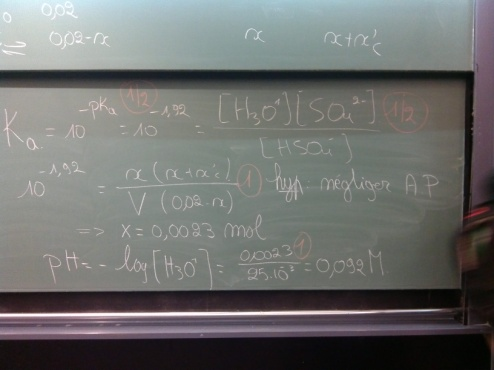 0 0,02
⇌ 0,02-x x x+x'c
Ka = 10^-pKa = 10^-1,92 = [H3O+][SO4^2-] / [HSO4^-] 1/2 1/2
10^-1,92 = x(x+x'c) / V(0,02-x) 1 hyp. négliger A.P
=> x = 0,0023 mol
pH = - log[H3O+] = 0,0023 / 25.10^-3 = 0,092 M 1